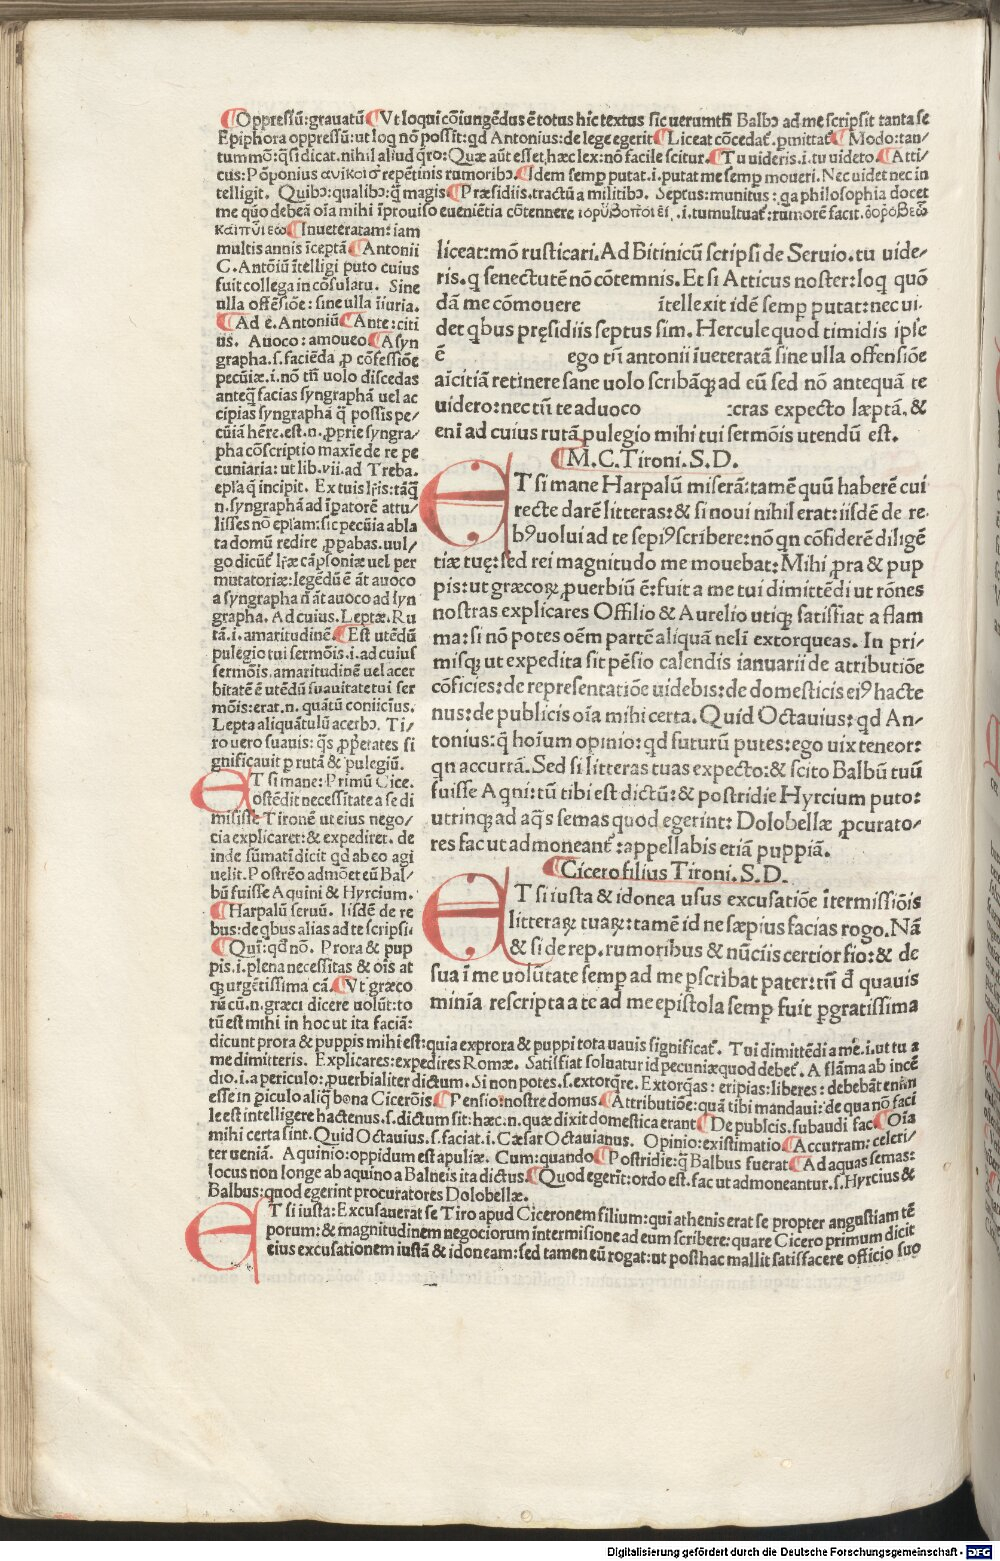 Oppressū:grauatū Vt loqui cōiungēdus ē totus hic textus sic uerumtñ Balbɔ ad me scripsit tanta se
Epiphora oppressū:ut loq̄ nō possit:qd Antonius:de lege egerit Liceat cōcedat᷒. pmittat᷒ Modo:tan/
tummō:q̄si dicat.nihil aliud q̄ro:Quæ aūt esset hæc lex:nō facile scitur. Tu uideris.i.tu uideto. Atti/
cus:Pōponius ανικοισ repētinis rumoribɔ. Idem semꝑ putat.i.putat me semꝑ moueri.Nec uidet nec in
telligit. Quibɔ:qualibɔ:q̄ magis Præsidiis.tractū a militibɔ. Septus:munitus:qa philosophia docet
me quō debeā oīa mihi īprouiso eueniētia cōtennere ιορυβοποιεῖ.i.tumultuat᷒:rumorē facit.
Inueteratam:iam
multis annis īceptā Antonii
C.Antōiū ītelligi puto cuius
fuit collega in cōsulatu. Sine
ulla offēsiōe:sine ulla īiuria.
Ad e.Antoniū Ante:citi
us. Auoco:amoueo Asyn
grapha.s.faciēda ꝓ cōfessiōe
pecūiæ.i.nō tñ uolo discedas
anteq̄ facias syngraphā uel ac
cipias syngraphā q̄ possis pe/
cūiā hēre.est.n.ꝓprie syngra/
pha cōscriptio maxīe de re pe
cuniaria:ut lib.vii.ad Treba.
epła q̄ incipit. Ex tuis łris:tāq̄
n.syngraphā ad īpatorē attu/
lisses nō epłam:sic pecūia abla
ta domū redire ꝓpabas.uul/
go dicūt᷒ łræ cāpsoniæ uel per
mutatoriæ:legēdū ē āt auoco
a syngrapha ñ āt auoco ad syn
grapha. Ad cuius.Leptæ.Ru
tā.i.amaritudinē. Est utēdū
pulegio tui sermōis.i.ad cuius
sermōis.amaritudinē uel acer
bitatē ē utēdū suauitate tui ser
mōis:erat.n.quātū coniicius.
Lepta aliquātulū acerbɔ. Ti/
ro uero suauis:q̄s ꝓprietates si
gnificauit p rutā & pulegiū.
ET si mane:Primū Cice.
ostēdit necessitate a se di
misisse Tironē ut eius nego/
cia explicaret:& expediret.de
inde sūmatī dicit qd ab eo agi
uelit.Postrēo admōet eū Bal/
bū fuisse Aquini & Hyrcium.
Harpalū seruū. Iisdē de re
bus:de q̄bus alias ad te scripsi.
Qui:qđ nō. Prora & pup
pis.i.plena necessitas & oīs at
q̄ urgētissima cā. Vt græco
rū cū.n.græci dicere uolūt:to
tū est mihi in hoc ut ita faciā:
liceat:mō rusticari.Ad Bitinicū scripsi de Seruio.tu uide/
ris.q senectutē nō cōtemnis.Et si Atticus noster:loq̄ quō
dā me cōmouere ītellexit idē semꝑ putat:nec ui.
det q̄bus pręsidiis septus sim.Hercule quod timidis ipse
ē ego tñ antonii īueteratā sine ulla offensiōe
aīcitiā retinere sane uolo scribāq̄ ad eū sed nō antequā te
uidero:nec tū te aduoco :cras expecto læptā.&
eni ad cuius rutā pulegio mihi tui sermōis utendū est.
M.C.Tironi.S.D.
ET si mane Harpalū miserā:tamē quū haberē cui
recte darē litteras:& si noui nihil erat:iisdē de re.
bꝰ uolui ad te sepiꝰ scribere:nō qn cōfiderē diligē
tiæ tuę:sed rei magnitudo me mouebat:Mihi ꝓra & pup
pis:ut græcoꝝ ꝓuerbiū ē:fuit a me tui dimittēdi ut rōnes
nostras explicares Offilio & Aurelio utiq̄ satisfiat a flam
ma:si nō potes oēm partē aliquā nelī extorqueas. In pri/
misq̄ ut expedita sit pēsio calendis ianuarii de atributiōe
cōficies:de representatiōe uidebis:de domesticis eiꝰ hacte
nus:de publicis oīa mihi certa.Quid Octauius:qd An/
tonius:q̄ hoīum opinio:qd futurū putes:ego uix teneor:
qn accurrā.Sed si litteras tuas expecto:& scito Balbū tuū
fuisse Aqni:tū tibi est dictū:& postridie Hyrcium puto:
utrinq̄ ad aq̄s semas quod egerint: Dolobellæ ꝓcurato/
res fac ut admoneant᷒:appellabis etiā puppiā.
Cicero filius Tironi.S.D.
ET si iusta & idonea usus excusatiōe ītermissiōis
litteraꝝ tuaꝝ:tamē id ne sæpius facias rogo.Nā
& si de rep.rumoribus & nūciis certior fio:& de
sua ī me uolūtate semꝑ ad me pscribat pater:tū đ quauis
minīa rescripta a te ad me epistola semꝑ fuit pgratissima
dicunt prora & puppis mihi est:quia ex prora & puppi tota nauis significat᷒. Tui dimittēdi a me.i.ut tu a
me dimitteris. Explicares:expedires Romæ. Satisfiat soluatur id pecuniæ quod debet᷒. A flāma ab incē
dio.i.a periculo:ꝓuerbialiter dictum.Si non potes.s.extorq̄re.Extorq̄as:eripias:liberes:debebāt enim
esse in ꝑiculo aliq̄ bona Cicerōis. Pensio:nostre domus. Attributiōe:quā tibi mandaui:de qua nō faci
le est intelligere hactenus.s.dictum sit:hæc.n.quæ dixit domestica erant De publcis.subaudi fac Oīa
mihi certa sint.Quid Octauius.s.faciat.i.Cæsar Octauianus. Opinio:existimatio Accurram:celeri/
ter ueniā. Aquinio:oppidum est apuliæ. Cum:quando Postridie:q̄ Balbus fuerat Ad aquas semas:
locus non longe ab aquino a Balneis ita dictus. Quod egerīt:ordo est.fac ut admoneantur.s.Hyrcius &
Balbus:quod egerint procuratores Dolobellæ.
ET si iusta:Excusauerat se Tiro apud Ciceronem filium:qui athenis erat se propter angustiam tē
porum:& magnitudinem negociorum intermisione ad eum scribere:quare Cicero primum dicit
eius excusationem iustā & idoneam:sed tamen eū rogat:ut posthac mallit satisfacere officio suo
Digitalisierung gefördert durch die Deutsche Forschungsgemeinschaft - DFG